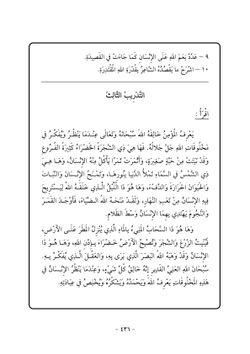 ٩ - عَدِّدْ نِعَمَ اللهِ عَلَى الإِنْسَانِ كَمَا جَاءَتْ فِي القَصِيدَةِ.
١٠ - اشْرَحْ مَا يَقْصِدُهُ الشَّاعِرُ بِقُدْرَةِ اللهِ المُقْتَدِرَةِ.
التَّدْرِيبُ الثَّالِثُ
اقْرَأْ :
يَعْرِفُ المُؤْمِنُ خَالِقَهُ اللهَ سُبْحَانَهُ وَتَعَالَى عِنْدَمَا يَنْظُرُ وَيُفَكِّرُ فِي
مَخْلُوقَاتِ اللهِ جَلَّ جَلَالُهُ. فَهَا هِيَ ذِي الشَّجَرَةُ الخَضْرَاءُ كَثِيرَةُ الفُرُوعِ
قَدْ نَبَتَتْ مِنْ حَبَّةٍ صَغِيرَةٍ، وَأَثْمَرَتْ ثَمَرًا يَأْكُلُ مِنْهُ الإِنْسَانُ، وَهَا هِيَ
ذِي الشَّمْسُ فِي السَّمَاءِ تَمْلَأُ الدُّنْيَا بِنُورِهَا، وَتَمْنَحُ الإِنْسَانَ وَالنَّبَاتَ
وَالحَيَوَانَ الحَرَارَةَ وَالدِّفْءَ، وَهَا هُوَ ذَا اللَّيْلُ الَّذِي خَلَقَهُ اللهُ لِيَسْتَرِيحَ
فِيهِ الإِنْسَانُ مِنْ تَعَبِ النَّهَارِ، وَلَقَدْ مَنَحَهُ اللهُ الضِّيَاءَ، فَأَوْجَدَ القَمَرَ
وَالنُّجُومَ يَهْتَدِي بِهِمَا الإِنْسَانُ وَسْطَ الظَّلَامِ.
وَهَا هُوَ ذَا السَّحَابُ المَلِيءُ بِالمَاءِ الَّذِي يُنْزِلُ المَطَرَ عَلَى الأَرْضِ،
فَيُنْبِتُ الزَّرْعَ وَالشَّجَرَ وَتُصْبِحُ الأَرْضُ خَضْرَاءَ بِإِذْنِ اللهِ، وَهَا هُوَ ذَا
الإِنْسَانُ وَقَدْ وَهَبَهُ اللهُ البَصَرَ الَّذِي يَرَى بِهِ، وَالعَقْلَ الَّذِي يُفَكِّرُ بِهِ.
سُبْحَانَ اللهِ العَلِيِّ القَدِيرِ إِنَّهُ خَالِقُ كُلِّ شَيْءٍ، وَعِنْدَمَا يَنْظُرُ الإِنْسَانُ فِي
هَذِهِ المَخْلُوقَاتِ يَعْرِفُ اللهَ وَيَحْمَدُهُ وَيَشْكُرُهُ وَيُخْلِصُ فِي عِبَادَتِهِ.
- ٤٣٦ -